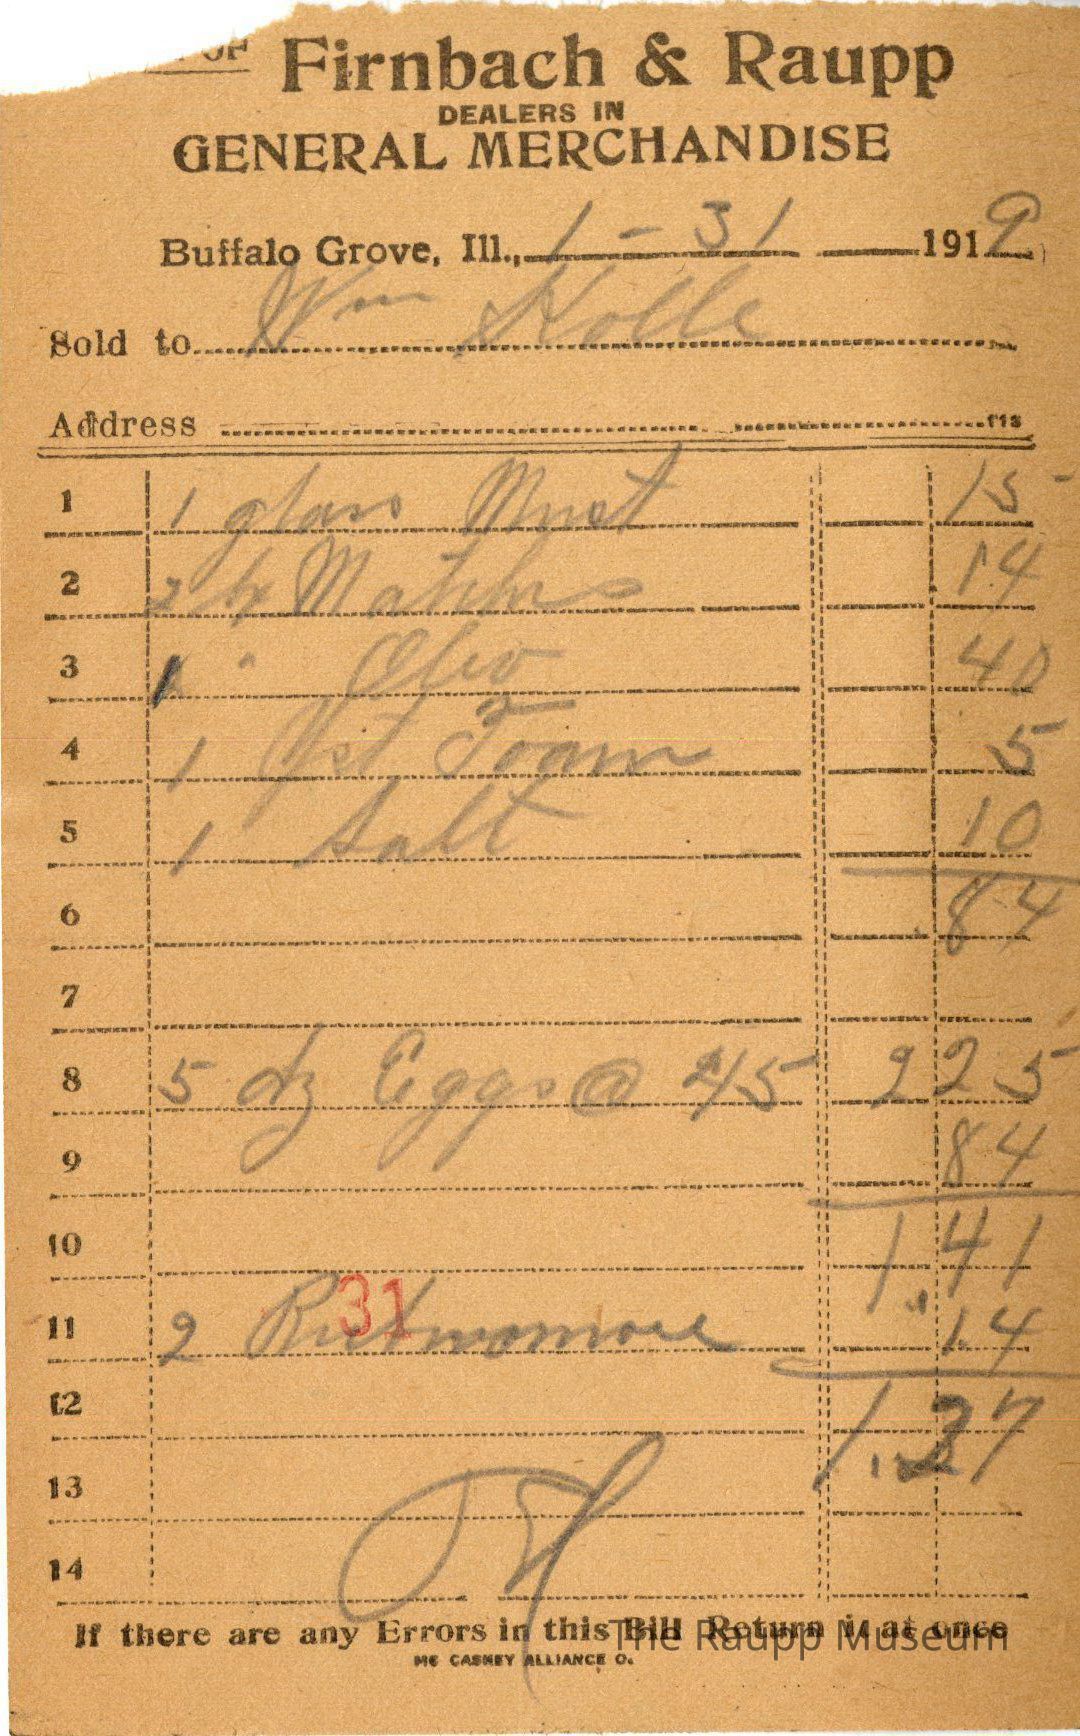 OF Firnbach & Raupp
DEALERS IN
GENERAL MERCHANDISE
Buffalo Grove, Ill., 1 - 31 1919
Sold to Wm Kolle
Address
1 1 glass Must 15
2 2 bx Matches 14
3 1 " Oleo 40
4 1 Yst Foam 5
5 1 Salt 10
6 .84
7
8 5 dz Eggs @ 45 2 25
9 84
10 1 41
11 2 14
31
12 1.27
13
14
If there are any Errors in this Bill Return it at once
The Raupp Museum